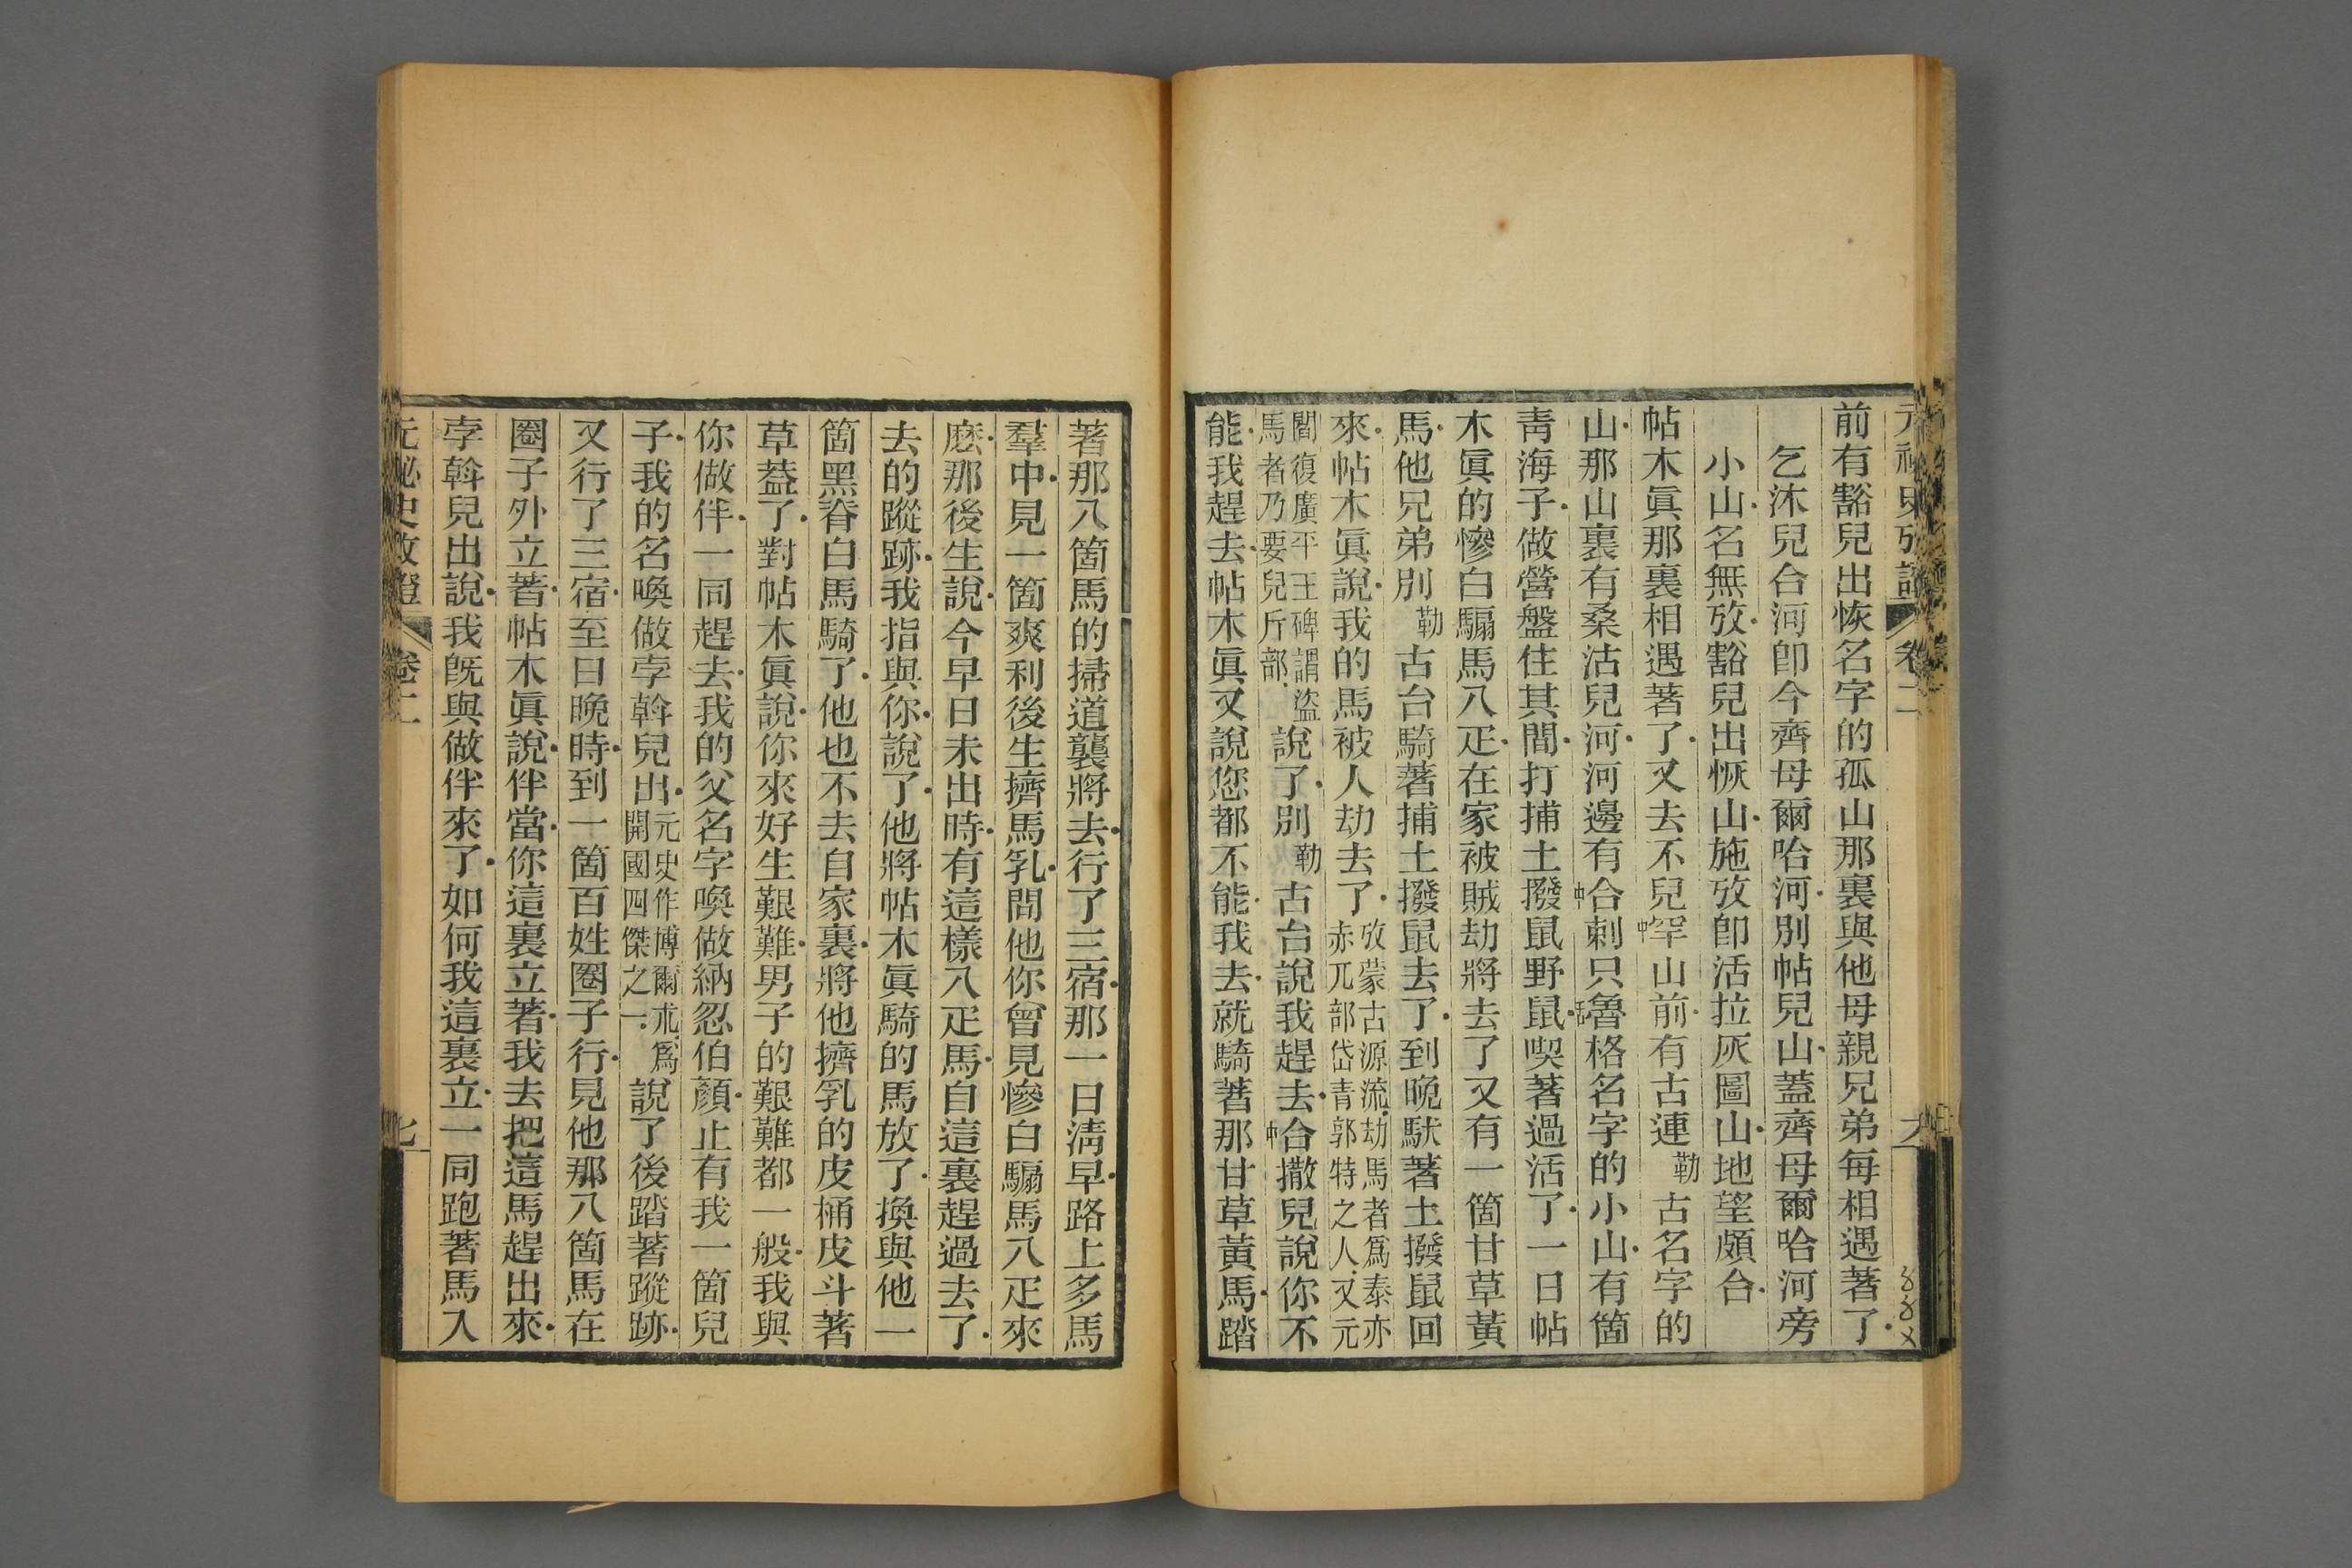 前有豁兒出恢名字的孤山那裏與他母親兄弟每相遇著了
乞沐兒合河卽今齊母爾哈河別帖兒山蓋齊母爾哈河旁
小山名無攷豁兒出恢山施攷卽活拉灰圖山地望頗合
帖木眞那裏相遇著了又去不兒中罕山前有古連勒古名字的
山那山裏有桑沽兒河河邊有中合剌只魯格名字的小山有箇
靑海子做營盤住其間打捕土撥鼠野鼠喫著過活了一日帖
木眞的慘白騸馬八疋在家被賊劫將去了又有一箇甘草黃
馬他兄弟別勒古台騎著捕土撥鼠去了到晚馱著土撥鼠回
來帖木眞說我的馬被人劫去了攷蒙古源流劫馬者爲泰亦
赤兀部岱青郭特之人又元
閻復廣平王碑謂盜
馬者乃要兒斤部說了別勒古台說我趕去中合撒兒說你不
能我趕去帖木眞又說您都不能我去就騎著那甘草黃馬踏
著那八箇馬的掃道襲將去行了三宿那一日淸早路上多馬
羣中見一箇爽利後生擠馬乳問他你曾見慘白騸馬八疋來
麽那後生說今早日未出時有這樣八疋馬自這裏趕過去了
去的蹤跡我指與你說了他將帖木眞騎的馬放了換與他一
箇黑脊白馬騎了他也不去自家裏將他擠乳的皮桶皮斗著
草蓋了對帖木眞說你來好生艱難男子的艱難都一般我與
你做伴一同趕去我的父名字喚做納忽伯顏止有我一箇兒
子我的名喚做孛斡兒出元史作博爾朮爲
開國四傑之一說了後踏著蹤跡
又行了三宿至日晚時到一箇百姓圈子行見他那八箇馬在
圈子外立著帖木眞說伴當你這裏立著我去把這馬趕出來
孛斡兒出說我旣與做伴來了如何我這裏立一同跑著馬入
元祕史攷證 卷二 七